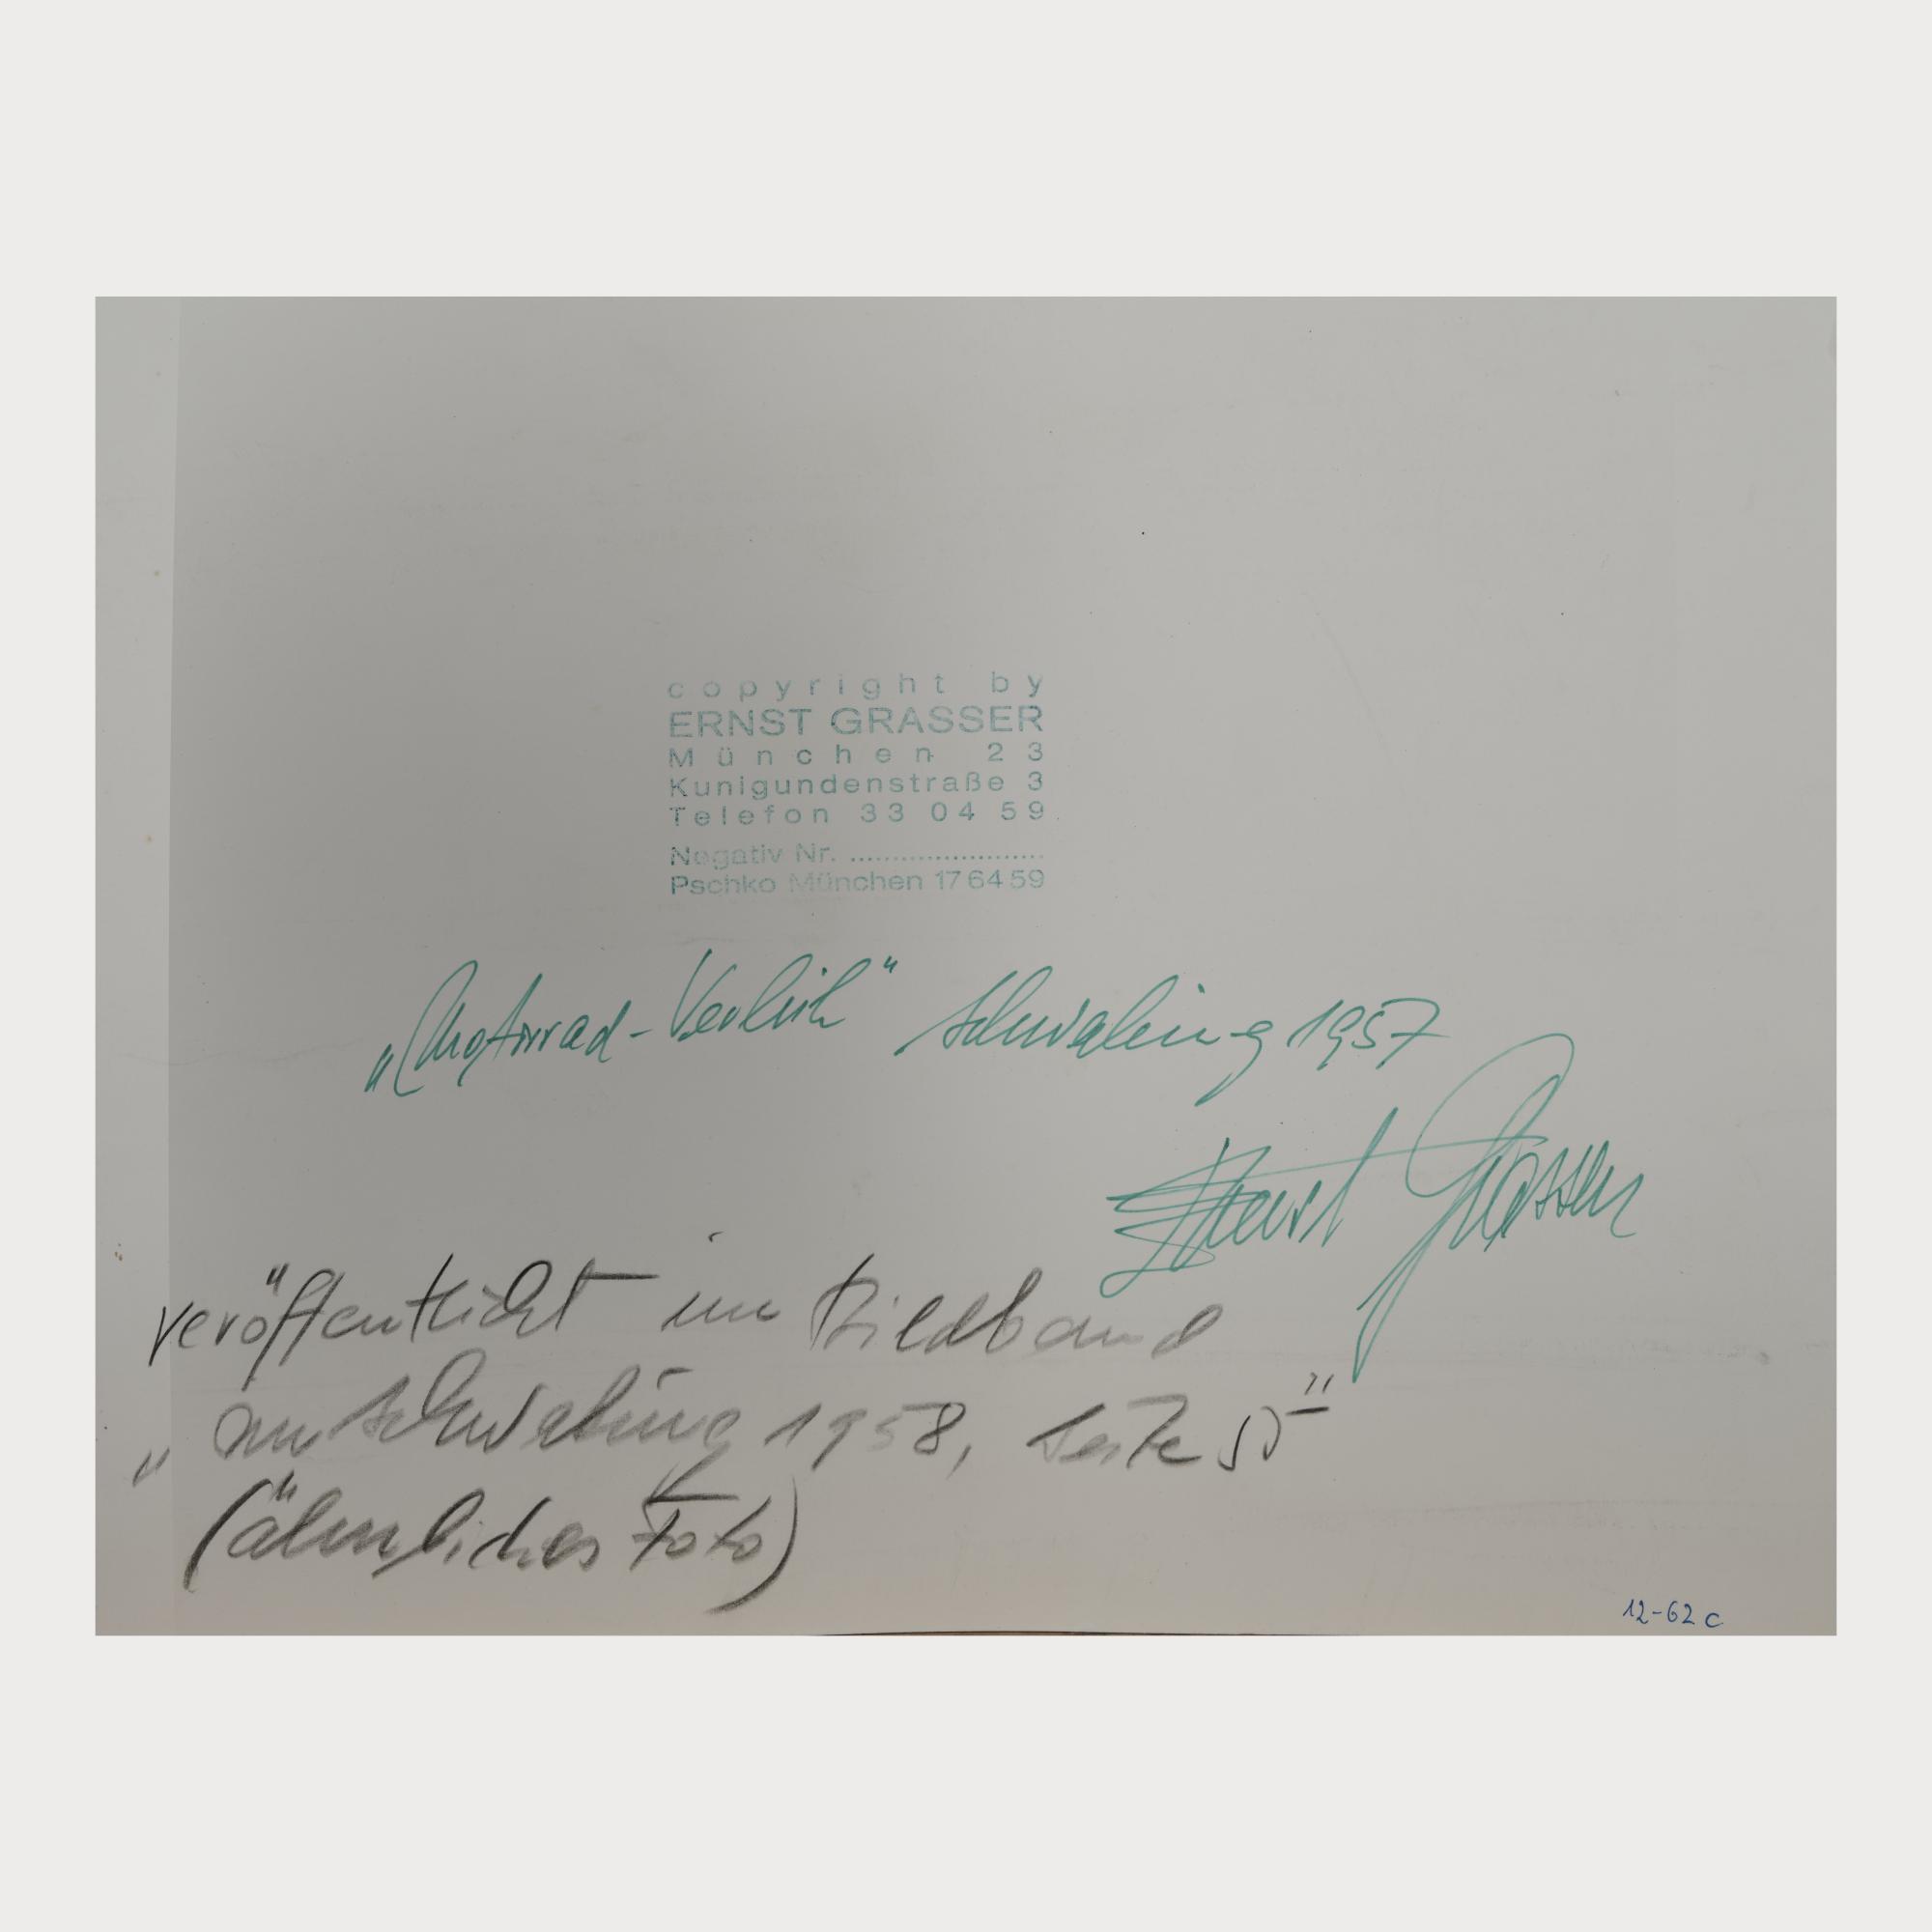 copyright by
ERNST GRASSER
München 23
Kunigundenstraße 3
Telefon 33 04 59
Negativ Nr. ........................
Pschko München 17 64 59
„Motorrad-Verleih“ Schwabing 1957
Ernst Grasser
veröffentlicht im Bildband
„ Schwabing 1958, Seite "
(ähnliches Foto)
12-62 c